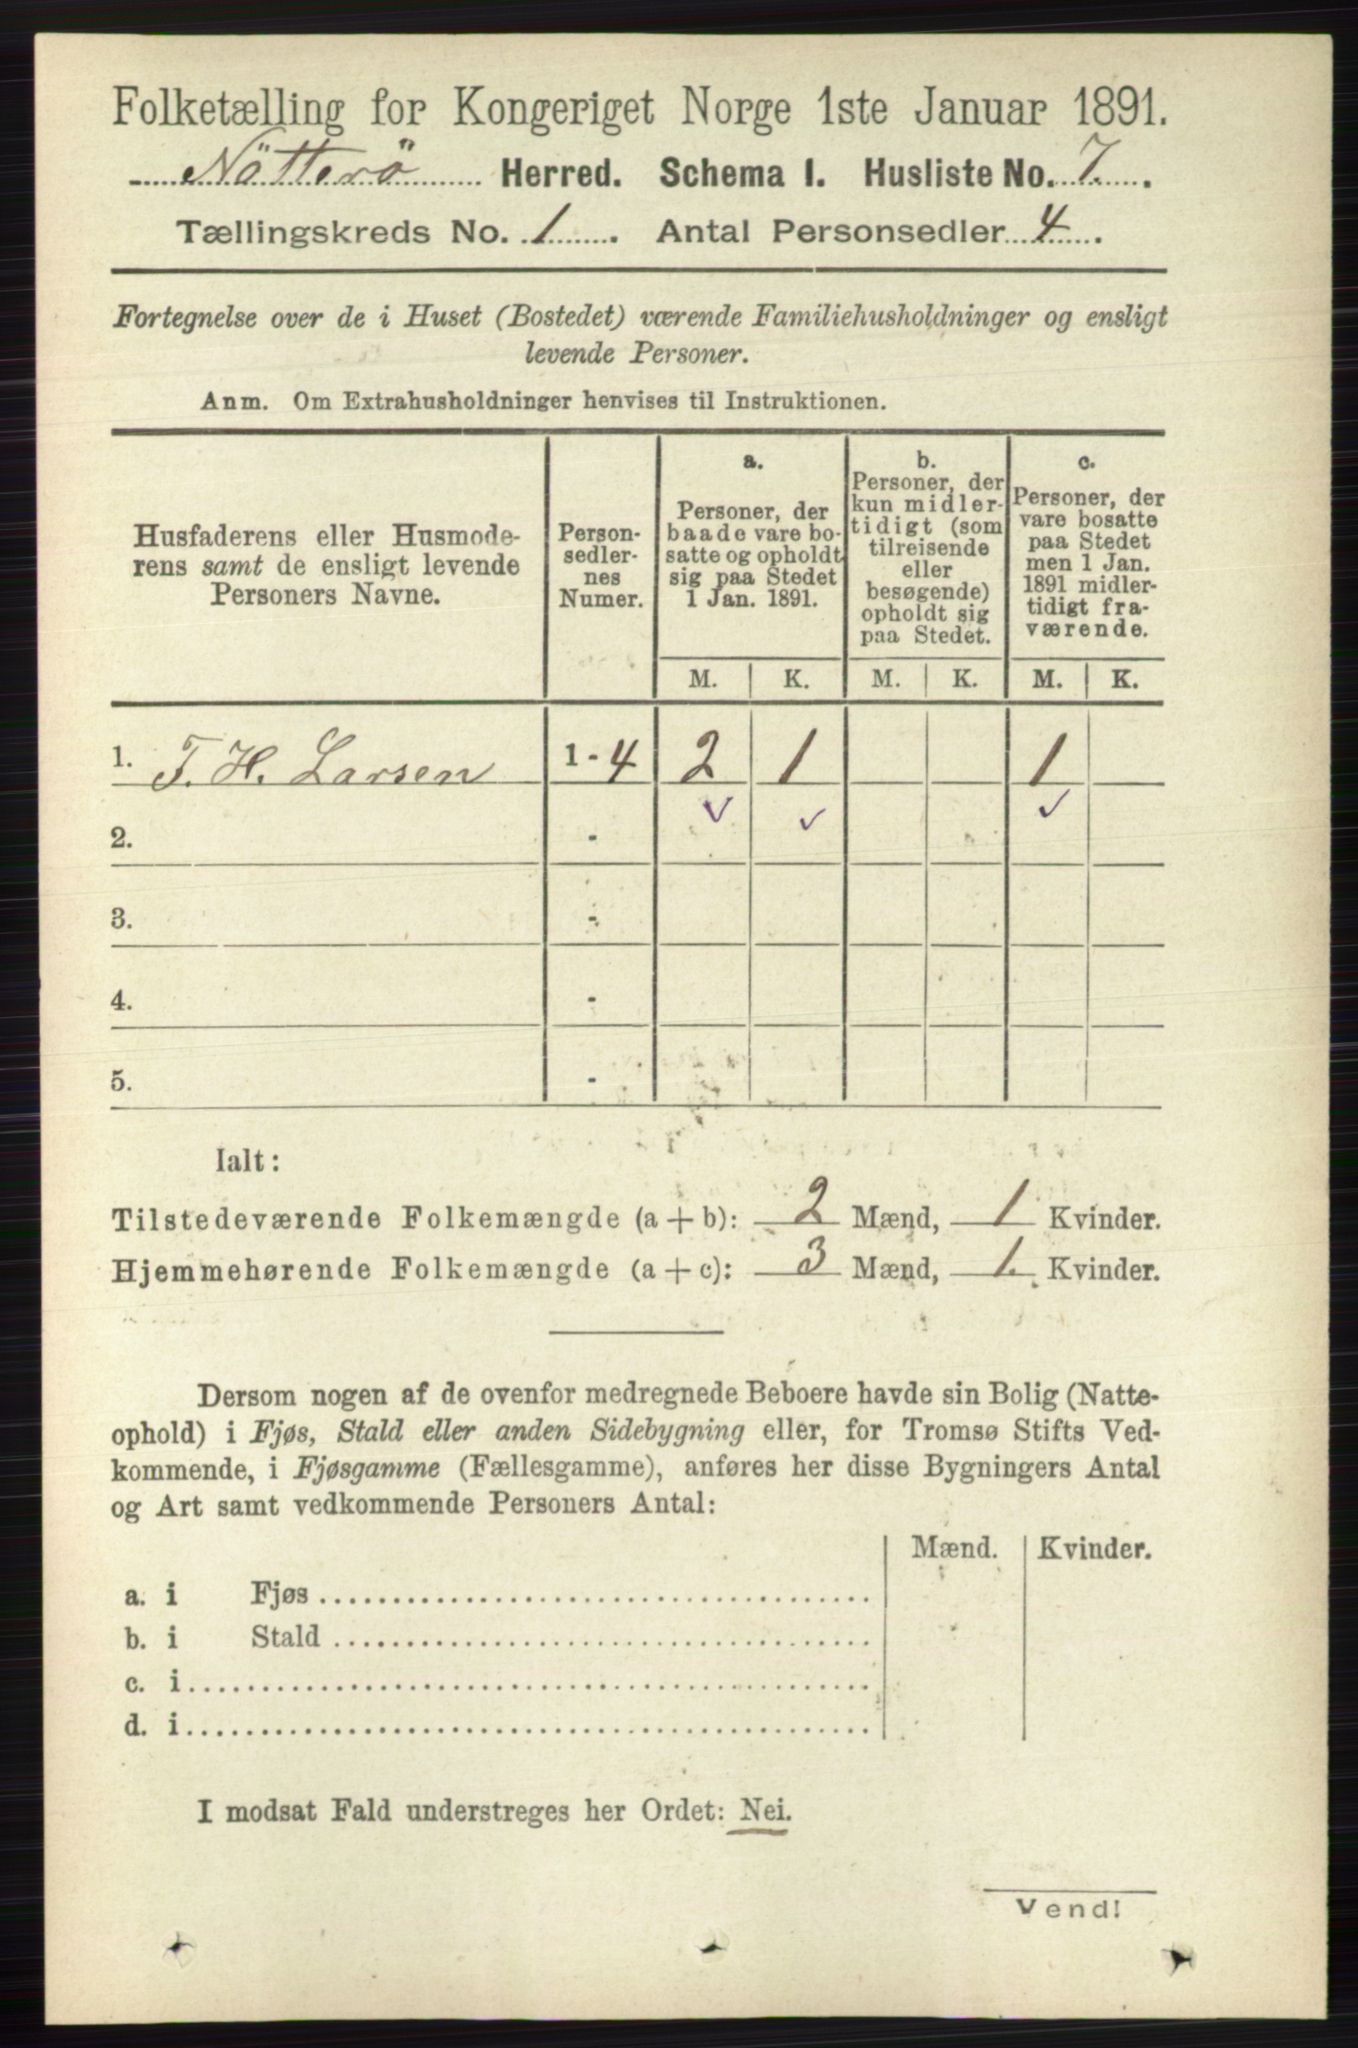 Folketælling for Kongeriget Norge 1ste Januar 1891.
Nötterö Herred. Schema I. Husliste No. 7.
Tællingskreds No. 1. Antal Personsedler 4.
Fortegnelse over de i Huset (Bostedet) værende Familiehusholdninger og ensligt
levende Personer.
Anm. Om Extrahusholdninger henvises til Instruktionen.
Husfaderens eller Husmode-
rens samt de ensligt levende
Personers Navne.
Person-
sedler-
nes
Numer.
a.
Personer, der
baade vare bo-
satte og opholdt
sig paa Stedet
1 Jan. 1891.
b.
Personer, der
kun midler-
tidigt (som
tilreisende
eller
besøgende)
opholdt sig
paa Stedet.
c.
Personer, der
vare bosatte
paa Stedet
men 1 Jan.
1891 midler-
tidigt fra-
værende.
M. K. M. K. M. K.
1. T. H. Larsen 1 - 4 2 1 1
2. -
3. -
4. -
5. -
Ialt:
Tilstedeværende Folkemængde (a + b): 2 Mænd, 1 Kvinder.
Hjemmehørende Folkemængde (a + c): 3 Mænd, 1. Kvinder.
Dersom nogen af de ovenfor medregnede Beboere havde sin Bolig (Natte-
ophold) i Fjøs, Stald eller anden Sidebygning eller, for Tromsø Stifts Ved-
kommende, i Fjøsgamme (Fællesgamme), anføres her disse Bygningers Antal
og Art samt vedkommende Personers Antal:
Mænd. Kvinder.
a. i Fjøs
b. i Stald
c. i
d. i
I modsat Fald understreges her Ordet: Nei.
Vend!